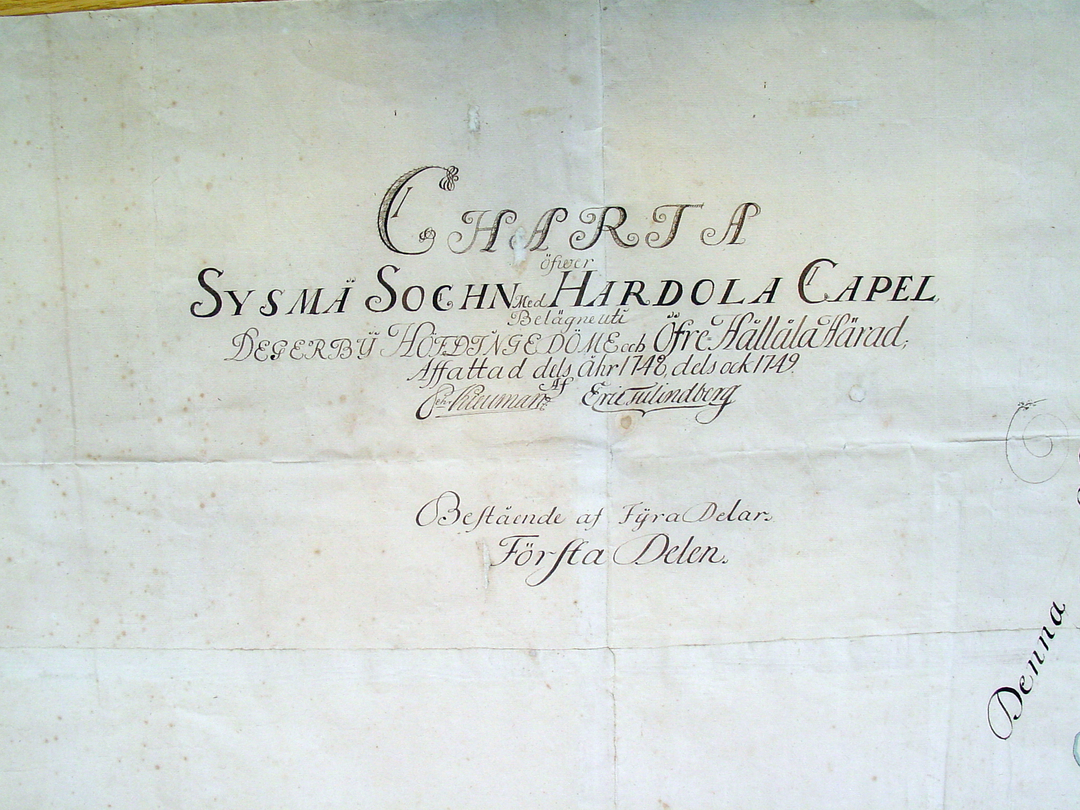 CHARTA
öfwer
SYSMÄ SOCHN Med HARDOLA CAPEL,
Belägne uti
DEGERBŸ HÖFDINGEDÖME och Öfre Hållåla Härad;
Affattad dels åhr 1748, dels ock 1749.
Af
Eric Tulindberg
Bestående af Fÿra Delar.
Första Delen.
Denna